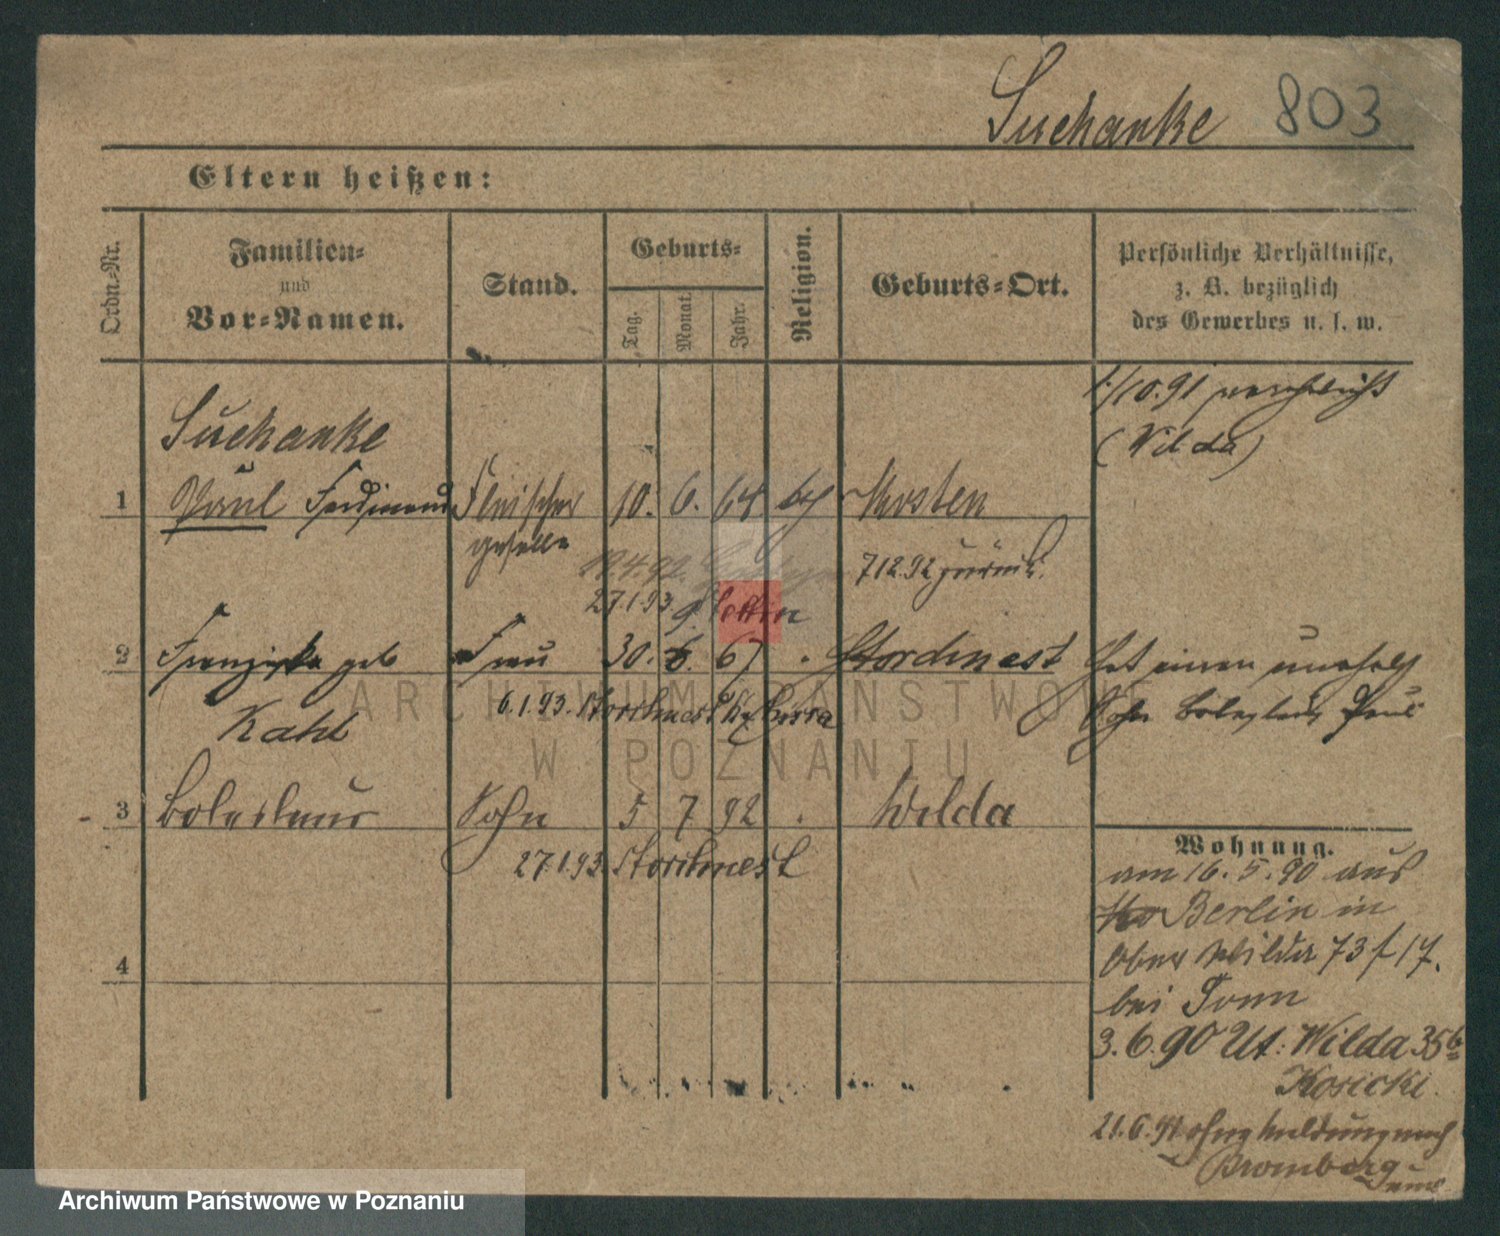 Suchanke 803
Eltern heißen:
Ordn.-Nr.
Familien-
und
Vor-Namen.
Stand.
Geburts-
Tag. Monat. Jahr.
Religion.
Geburts-Ort.
Persönliche Verhältnisse,
z. B. bezüglich
des Gewerbes u. s. w.
1/10.91
(Wilda)
Suchanke
1 Paul Ferdinand Fleischer 10. 6. 64 Kosten
geselle
7 12.92 zurück.
27.1.93.
2 Franziska geb Frau 30. 67 Storchnest
Hat einen unehel
Kahl
6.1.93. Storchnest Lissa
Sohn Boleslaus Paul
3 Boleslaus Sohn 5 7 92 Wilda
27.1.93. Storchnest
4
Wohnung.
am 16.5.90 aus
Berlin in
Ober Wilda 73 17.
bei Tomn
3.6.90 Ut: Wilda 35
Kosicki
21.6.91 ohne Meldung nach
Bromberg
ARCHIWUM PAŃSTWOWE
W POZNANIU
Archiwum Państwowe w Poznaniu